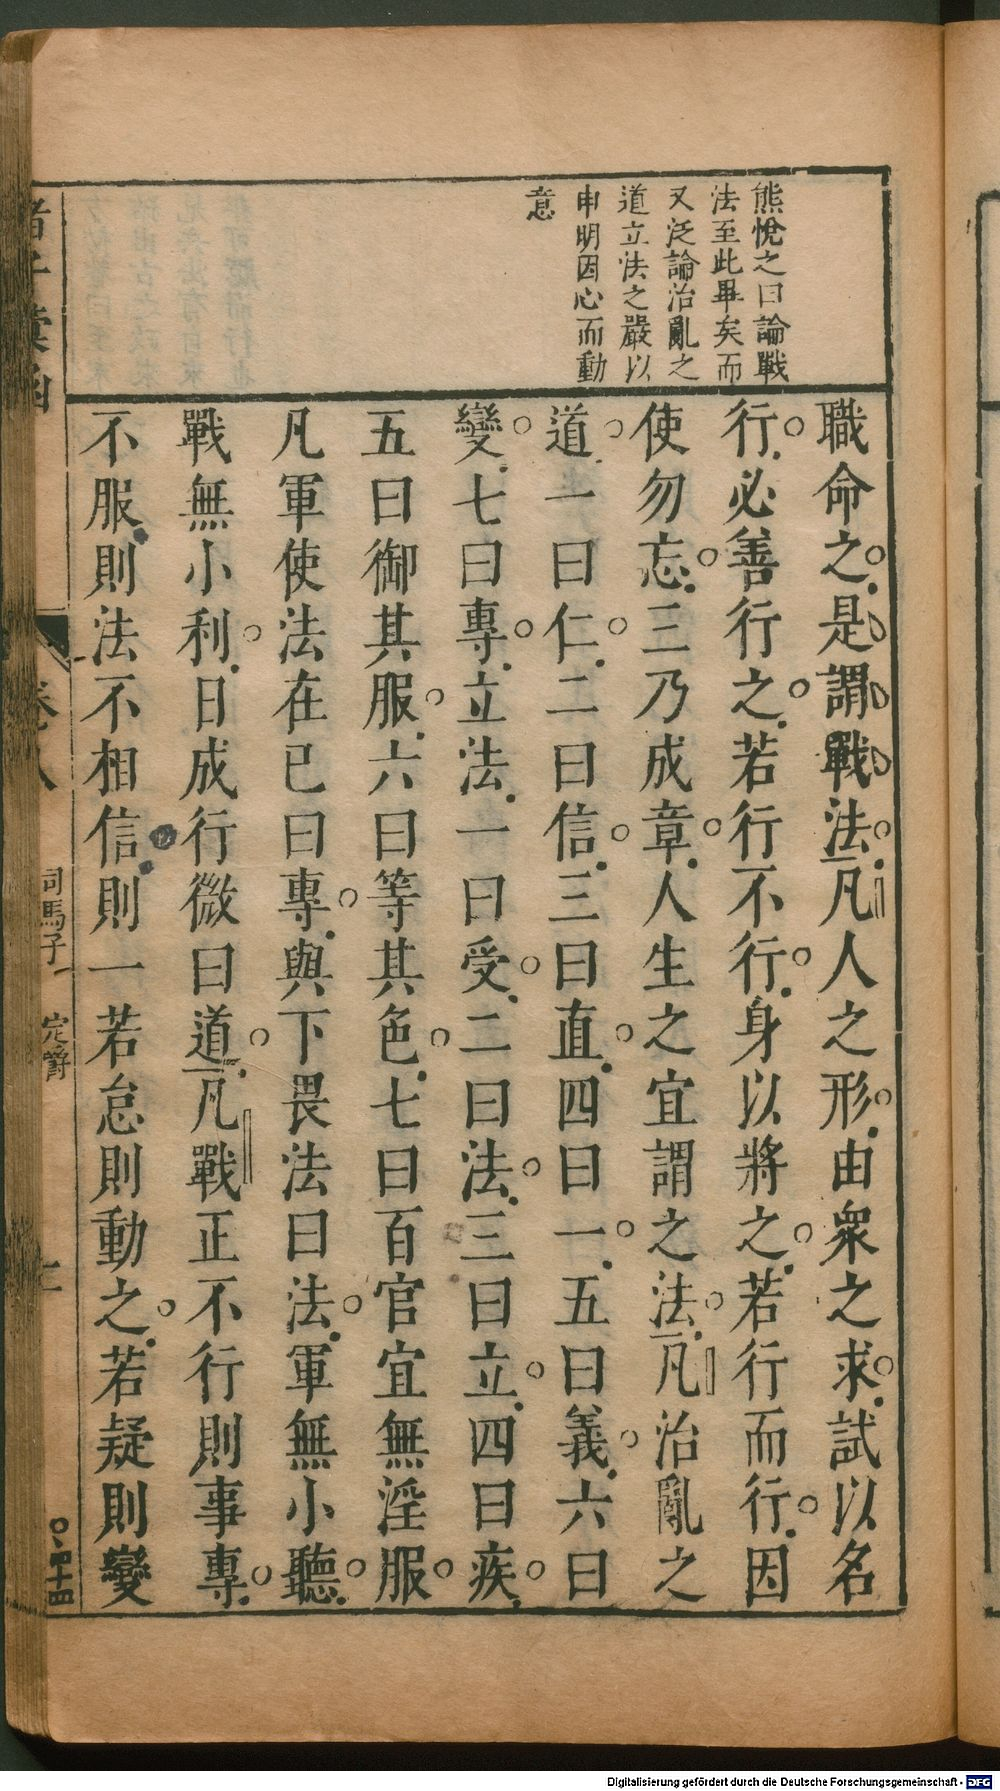 熊悅之曰論戰
法至此畢矣而
又泛論治亂之
道立法之嚴以
申明因心而動
意
職命之是謂戰法凡人之形由衆之求試以名
行必善行之若行不行身以將之若行而行因
使勿忘三乃成章人生之宜謂之法凡治亂之
道一曰仁二曰信三曰直四曰一五曰義六曰
變七曰專立法一曰受二曰法三曰立四曰疾
五曰御其服六曰等其色七曰百官宜無淫服
凡軍使法在已曰專與下畏法曰法軍無小聽
戰無小利日成行微曰道凡戰正不行則事專
不服則法不相信則一若怠則動之若疑則變
諸子彙函
卷八
司馬子
定爵
四十四
Digitalisierung gefördert durch die Deutsche Forschungsgemeinschaft - DFG